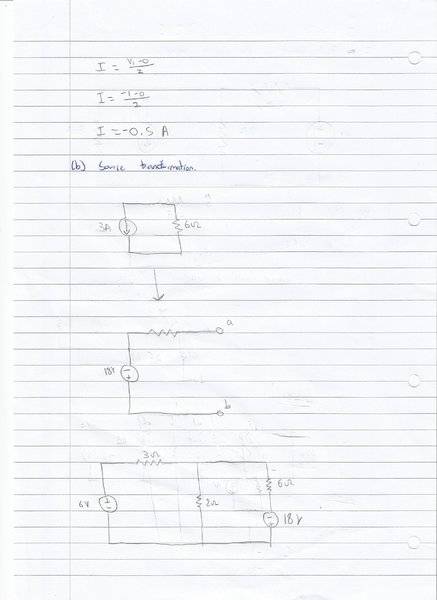 I = V₁-0/2
I = -1-0/2
I = -0.5 A
(b) Source transformation.
3A 6Ω
a
18V
b
3Ω
6V 2Ω 6Ω
18V